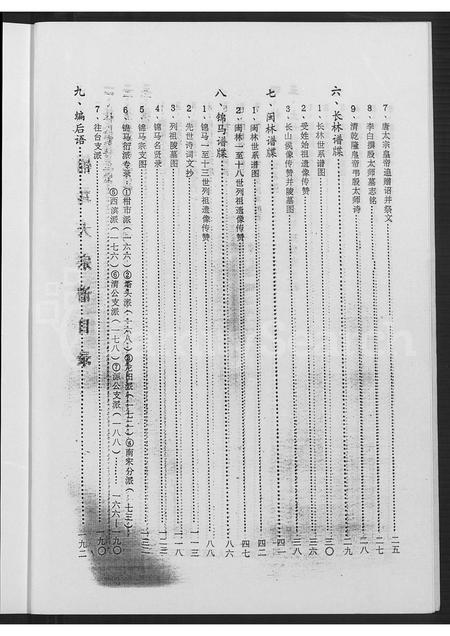 7、唐太宗皇帝追赠诏并祭文……二五
8、李白撰殷太师墓志铭……二七
9、清乾隆皇帝吊殷太师诗……二九
六、长林谱牒……三〇
1、长林世系谱图……三〇
2、受姓始祖遗像传赞……三六
3、长山侯像传赞并陵墓图……三八
七、闽林谱牒……四一
1、闽林世系谱图……四二
2、闽林一至十八世列祖遗像传赞……四七
八、锦马谱牒……八六
1、锦马一至十三世列祖遗像传赞……八八
2、先世诗词文抄……一一三
3、列祖陵墓图……一一八
4、锦马名贤录……一二二
5、锦马宗支图……一三二
6、锦马衍派专录：①柑市派（一六六）②塔头派（一六八）③龙田派（一七二）④南宋分派（一七三）
⑤西滨派（一七六）⑥清公支派（一七八）⑦派公支派（一八八）……一六六—一九〇
7、往台支派……一九〇
九、编后语……一九二